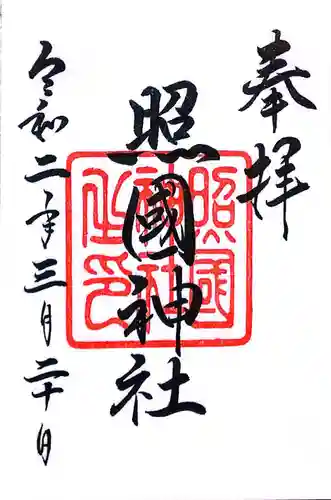 奉拝
照國神社
令和二年三月二十日
照國神社之印